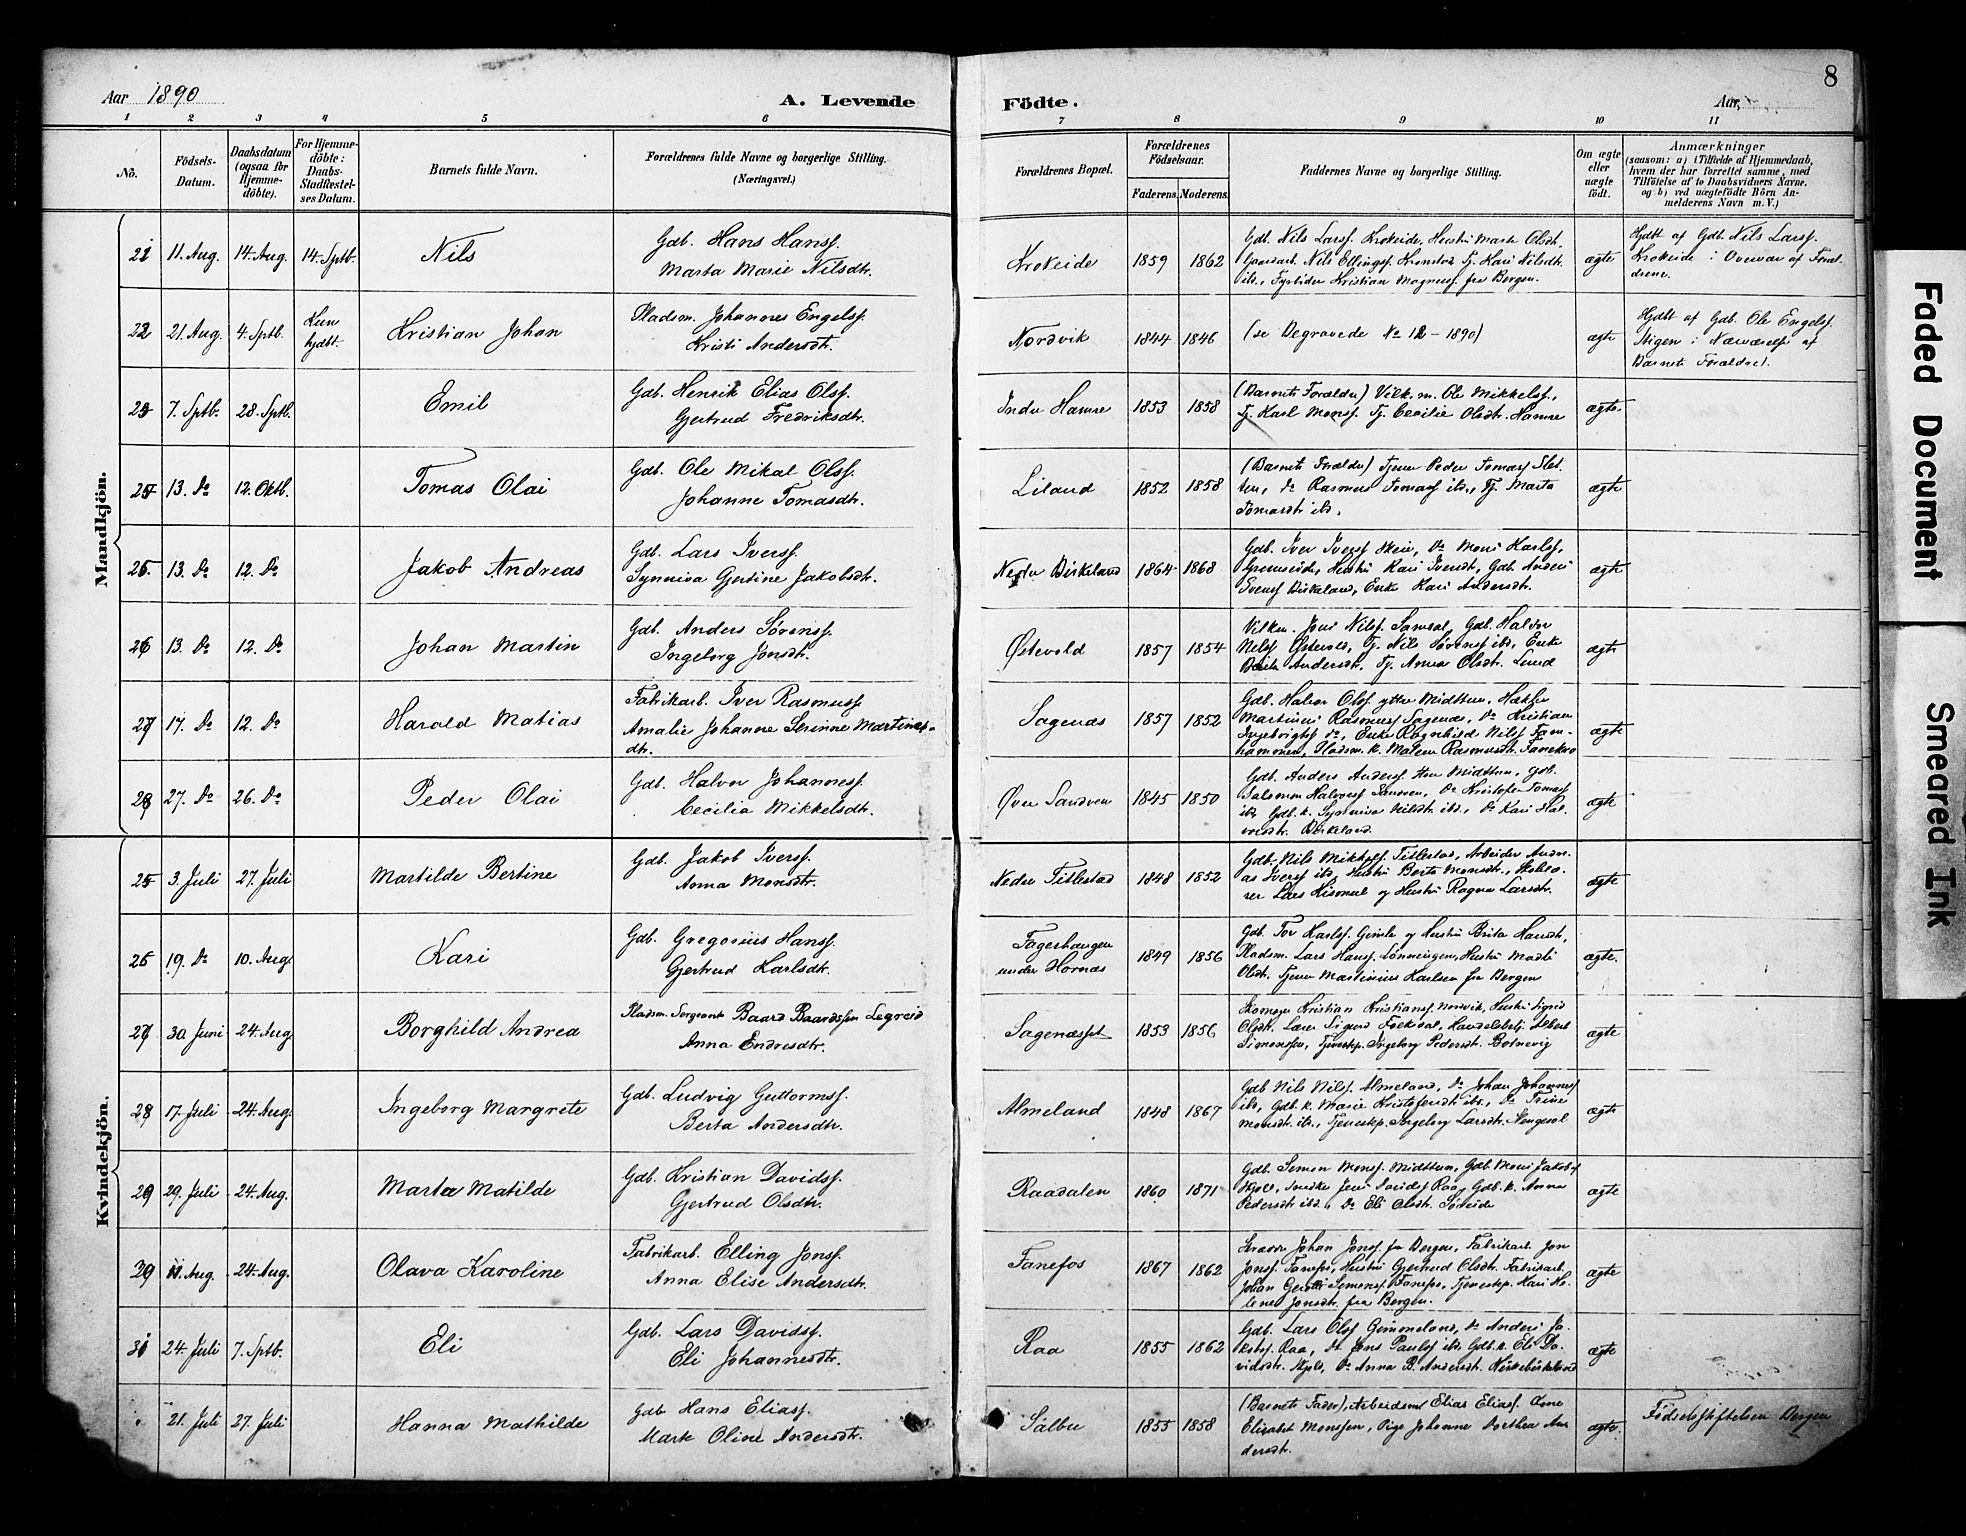 8
Aar 1890
A. Levende
Födte.
Aar,
1 2 3 4 5 6 7 8 9 10 11
No.
Födsels-
Datum.
Daabsdatum
(ogsaa for
Hjemme-
döbte).
For Hjemme-
döbte:
Daabs-
Stadfæstel-
ses Datum.
Barnets fulde Navn.
Forældrenes fulde Navne og borgerlige Stilling.
(Næringsvei.)
Forældrenes Bopæl.
Forældrenes
Födselsaar.
Faderens. Moderens.
Faddernes Navne og borgerlige Stilling.
Om ægte
eller
uægte
födt.
Anmærkninger
(saasom: a) i Tilfælde af Hjemmedaab,
hvem der har forrettet samme, med
Tilföielse af to Daabsvidners Navne,
og b) ved uægtefödte Börn An-
melderens Navn m. V.)
Mandkjön.
21 11. Aug. 14. Aug. 14. Sptb. Nils
Gdb. Hans Hanss.
Marta Marie Nilsdtr.
Krokeide 1859 1862
Gdb. Nils Larss. Krokeide, Hustru Marta Olsdt.
Gaardarb. Nils Ellingss. Kronstad Tj. Kari Nilsdtr
ibd., Kristian Magnuss. fra Bergen.
ægte
Hjdbt af Gdb. Nils Larss.
Krokeide i Overvær af Foræl-
drene.
22 21. Aug. 4. Sptb. Kun
hjdbt. Kristian Johan
Pladsm. Johannes Engelss.
Kristi Andersdtr.
Nordvik 1844 1846
(se Begravede No 12 - 1890)
ægte
Hjdbt af Gdb. Ole Engelss.
Stigen i Nærværelse af
Barnets Forældre.
23 7. Sptb. 28. Sptb. Emil
Gdb. Henrik Elias Olss.
Gjertrud Fredriksdtr.
Indre Hamre 1853 1858
(Barnets Forældre) Ole Mikkelss.,
Tj. Karl Monss. Tj. Cecilie Olsdtr. Hamre
ægte
24 13. Do 12. Oktb. Tomas Olai
Gdb. Ole Mikal Olss.
Johanne Tomasdtr.
Liland 1852 1858
(Barnets Forældre) Tjener Peder Tomass Slet-
ten, Do Rasmus Tomass ibd., Tj. Marta
Tomasdtr ibd.
ægte
25. 13. Do 12. Do Jakob Andreas
Gdb. Lars Iverss.
Synneva Gjertine Jakobsdtr.
Nedre Birkeland 1864 1868
Gdb. Iver Iverss Skeie, Do Mons Karlss,
Grimseide, Hustru Kari Iversdt, Gdb Anders
Birkeland, Enke Kari Andersdtr.
ægte
26 13. Do 12. Do Johan Martin
Gdb. Anders Sörenss.
Ingeborg Jonsdtr.
Østevold 1857 1854
Nilss. Samdal, Gdb. Haldor
Nilss Østevold, Tj. Nils Sörenss ibd., Enke
Andersdtr., Tj. Anna Olsdtr. Lund
ægte
27 17. Do 12. Do Harald Matias
Fabrikarb. Iver Rasmuss
Amalie Johanne Serinne Martines-
dtr.
Sagenæs 1857 1852
Gdb. Halvor Olss ytre Midttun,
Martinus Rasmuss Sagenæs, Do Kristian
Ingebrigts do, Enke Ragnhild Nilss Fan-
hammeren, Pladsm. k. Malene Rasmusdt. Fanekro
ægte
28 27. Do 26. Do Peder Olai
Gdb. Halvor Johanness.
Cecilia Mikkelsdtr.
Øvre Sandven 1845 1850
Gdb. Anders Anderss. Midttun, Gdb.
Salomon Halvorss Sandven, Do Kristofer Tomass
ibd, Gdb. k. Synneva Nilsdt. ibd., Do Kari Hal-
vorsdtr. Birkeland.
ægte
Kvindekjön.
25 3. Juli 27. Juli Martilde Bertine
Gdb. Jakob Iverss.
Anna Monsdtr.
Nedre Titlestad 1848 1852
Gdb. Nils Mikkelss Titlestad, Arbeider Andre-
as Iverss ibd, Hustru Berta Monsdtr., Skolelæ-
rer Lars Kismul og Hustru Ragna Larsdtr.
ægte
26 19. Do 10. Aug Kari
Gdb. Gregorius Hanss.
Gjertrud Karlsdtr.
Fagerhaugen
under Hornæs
1849 1856
Gdb. Tor Karlss. Gimle og Hustru Brita Hansdt,
Pladsm. Lars Hanss. Lönningen, Hustru Madli
Olsdt. Tjener Martinius Karlsen fra Bergen
ægte.
27 30. Juni 24. Aug Borghild Andrea
Pladsm. Sergeant Baard Baardssen Legreid
Anna Endresdtr.
Sagenæsset 1853 1856
Skomager Kristian Kristianss. Nordvik, Hustru Sigrid
Olsdt., Lærer Sigurd Folkedal, Handelsbetj. Albert
Simonssen, Tjenestep. Ingeborg Pedersdt. Botnevig
ægte
28 17. Juli 24. Aug. Ingeborg Margrete
Gdb. Ludvig Guttormss.
Berta Andersdtr.
Almeland 1848 1867
Gdb Nils Nilss. Almeland, Do Johan Johanness
ibd, Gdb. k. Marie Kristofersdt ibd., Do Trine
Monsdtr. ibd., Tjenestep. Ingeborg Larsdtr.
ægte
29 29. Juli 24. Aug. Marta Matilde
Gdb. Kristian Davidss.
Gjertrud Olsdtr.
Raadalen 1860 1871
Gdb. Simon Monss. Midttun, Gdb Mons Jakobss
Skjold, Davidss Raa, Gdb. k. Anna
Pedersdtr ibd., Do Eli Olsdtr. Söreide
ægte
30 11. Aug. 24. Aug. Olava Karoline
Fabrikarb. Elling Jonss.
Anna Elise Andersdtr.
Fanefos 1867 1862
Johan Jonss. fra Bergen, Fabrikarb. Jon
Jonss. Fanefos, Hustru Gjertrud Olsdtr. Fabrikarb.
Johan Simonss. Fanefos, Tjenestep. Kari He-
lene Jonsdtr. fra Bergen.
ægte
31 24. Juli 7. Sptb. Eli
Gdb. Lars Davidss.
Eli Johannesdtr.
Raa 1855 1862
Gdb. Lars Olss Grimmeland, Do Anders Ja-
kobss. Raa, Do Jens Paulss ibd, Gdb. k. Eli Da-
vidsdtr. Skjold, Do Anna B. Andersdt.
ægte
21. Juli 27. Juli Hanna Mathilde
Gdb Hans Eliass.
Marte Oline Andersdtr.
Salbu 1855 1858
(Barnets Fader), Arbeidsmd Elias Eliass. Osne
Elisabet Monssen, Pige Johanne Dorthea An-
dersdtr.
ægte.
Födselsstiftelsen Bergen
Faded Document
Smeared Ink